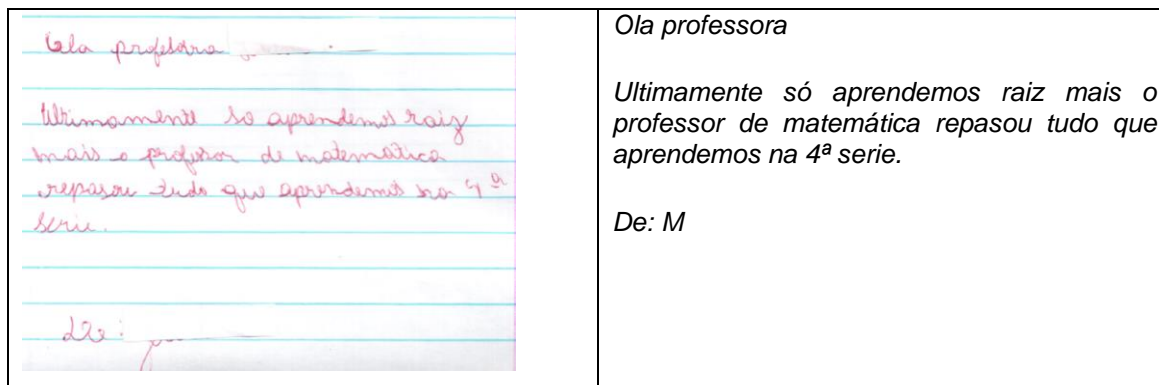 Ola profesora
Ultimamente so aprendemos raiz
mais o professor de matematica
repasou tudo que aprendemos na 4ª
serie.
De:
Ola professora
Ultimamente só aprendemos raiz mais o
professor de matemática repasou tudo que
aprendemos na 4ª serie.
De: M